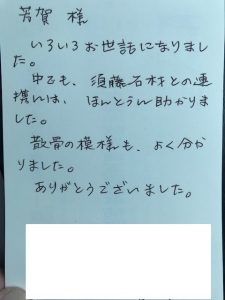 芳賀 様
いろいろお世話になりまし
た。
中でも、須藤石材との連
携には、ほんとうに助かりま
した。
散骨の模様も、よく分か
りました。
ありがとうございました。